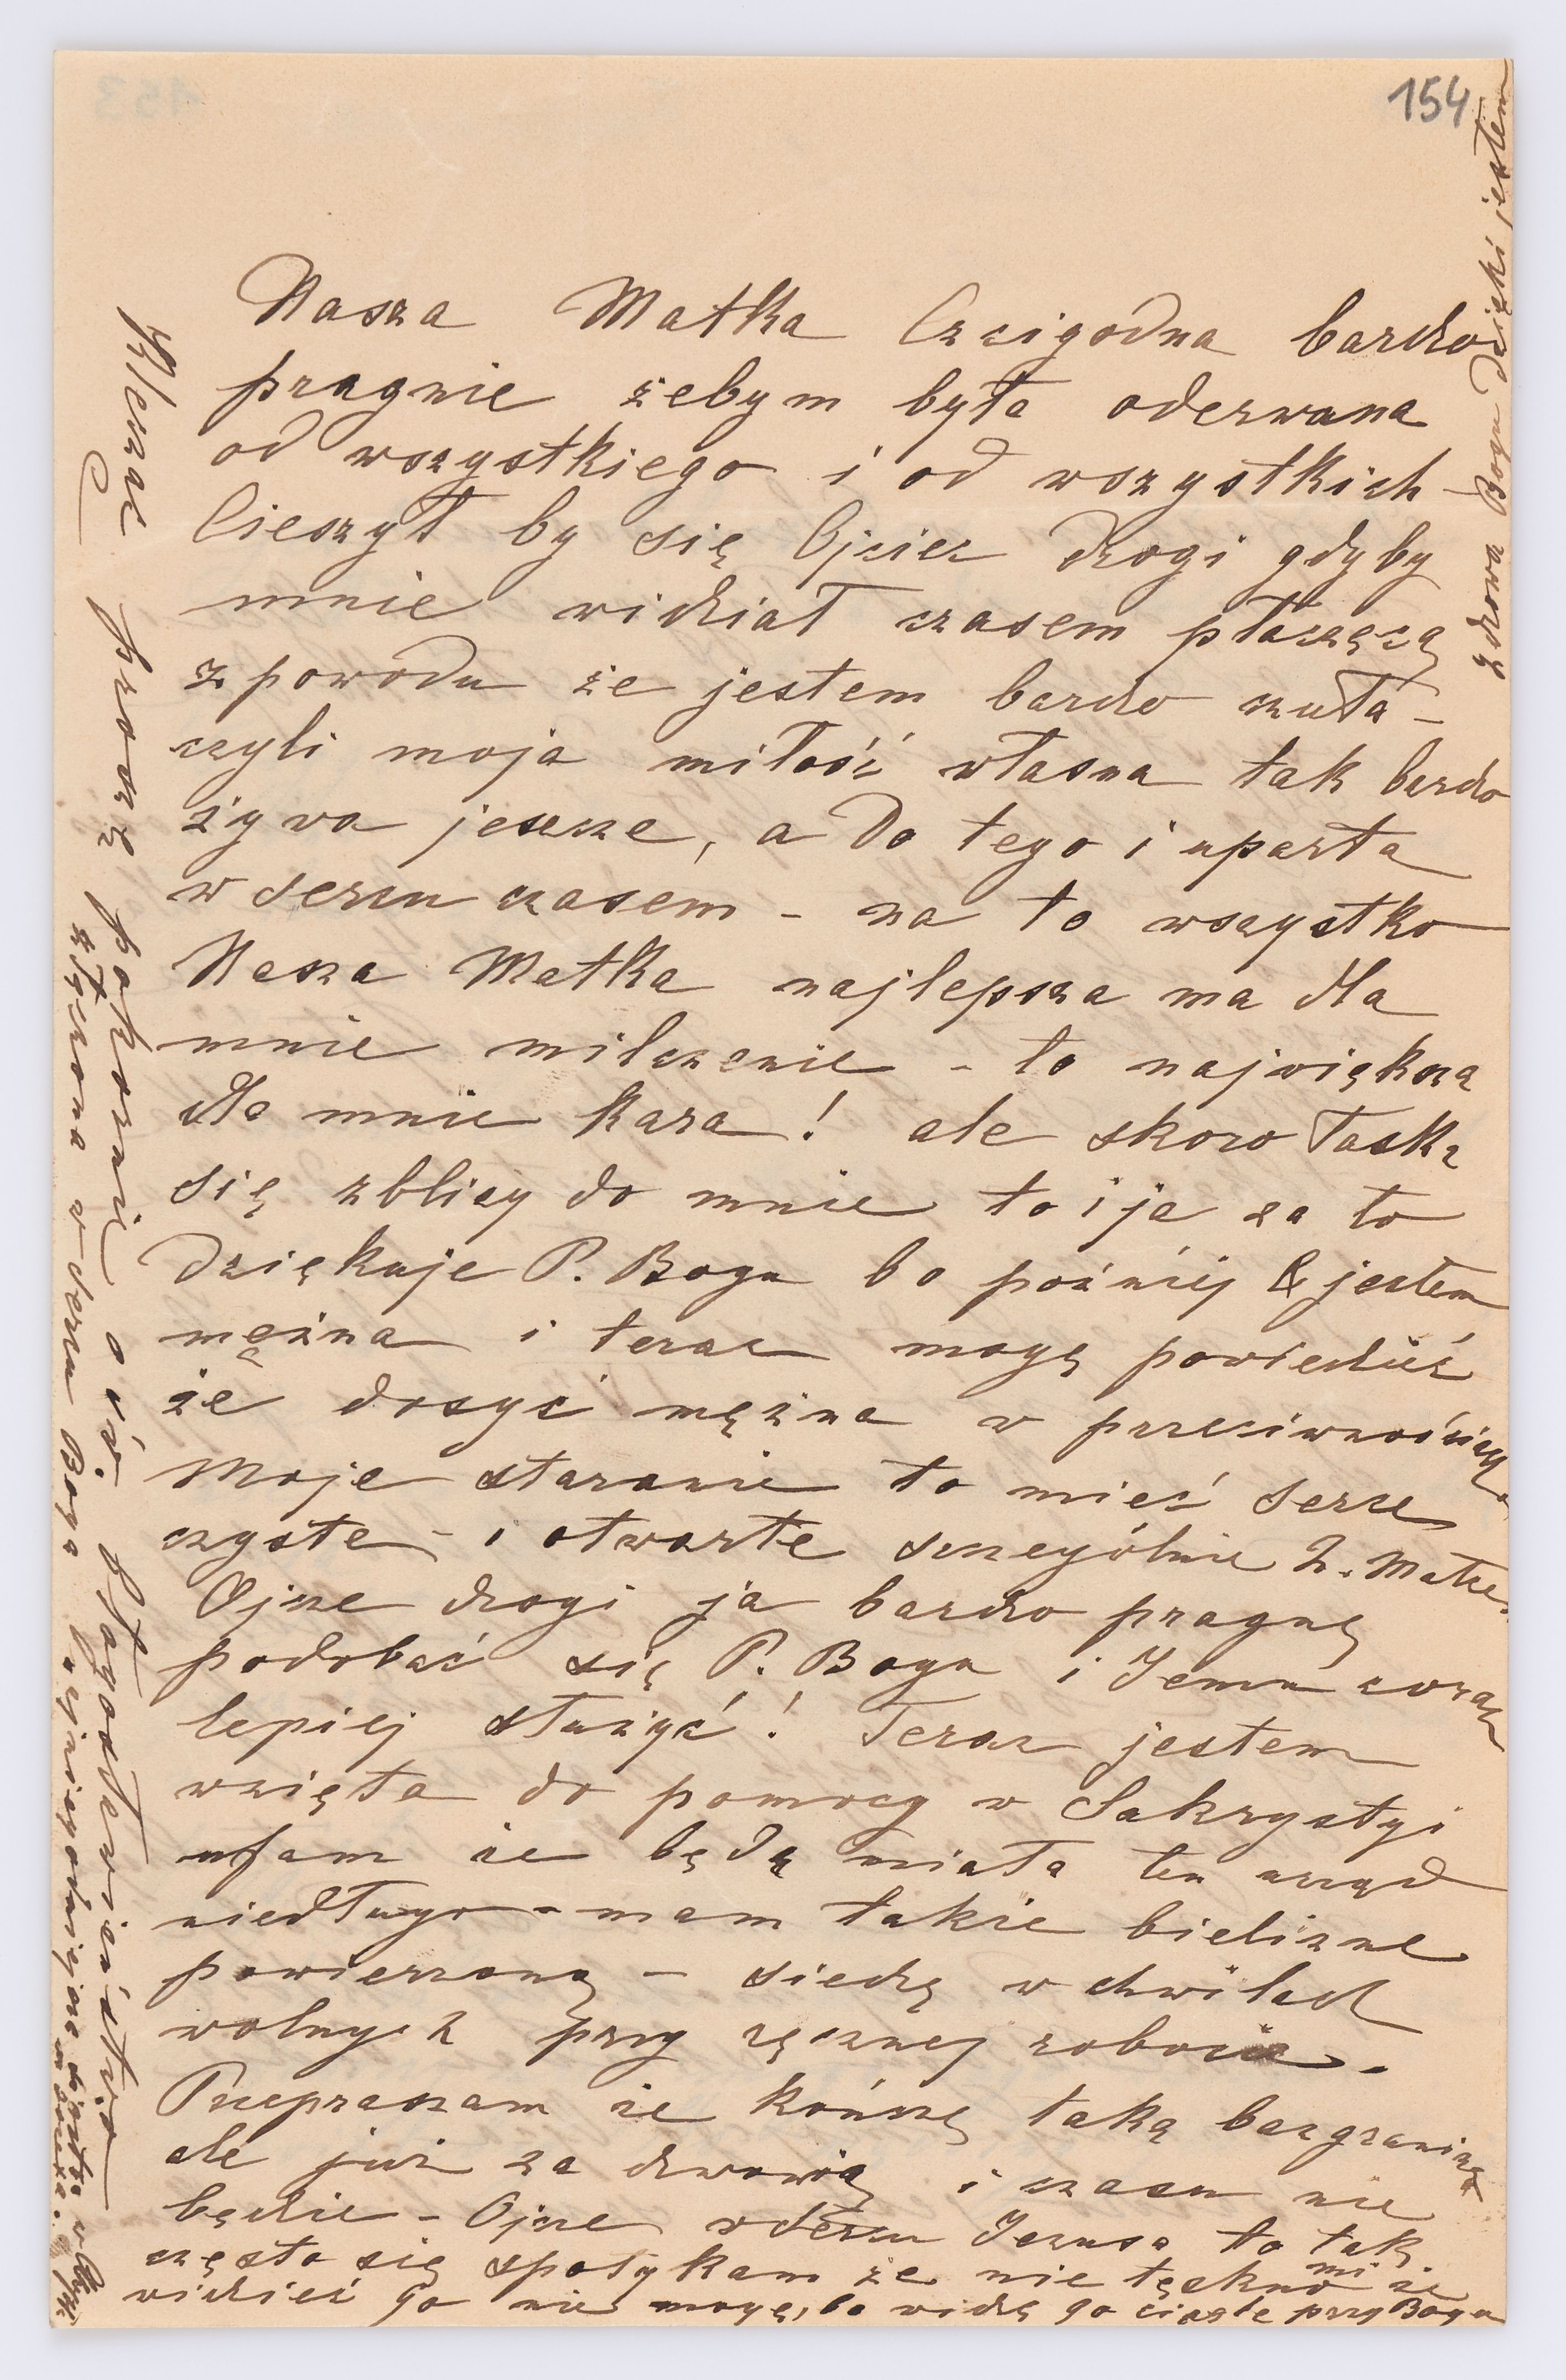 154
Nasza Matka Czcigodna bardzo
pragnie żebym była oderwana
od wszystkiego i od wszystkich –
Cieszył by się Ojciec drogi gdyby
mnie widział czasem płaczącą
z powodu że jestem bardzo czuła –
czyli moja miłość własna tak bardzo
żywa jeszcze, a do tego i uparta
w sercu czasem – na to wszystko
Nasza Matka najlepsza ma dla
mnie milczenie – to największa
dla mnie kara! ale skoro łaska
się zbliży do mnie to i ja za to
dziękuje P. Bogu bo poźniej jestem
mężna i teraz mogę powiedzieć
że dosyć mężna w przeciwnościach.
Moje staranie to mieć serce
czyste – i otwarte szczególnie N. Matce.
Ojcze drogi ja bardzo pragnę
podobać się P. Bogu i Jemu coraz
lepiej służyć! Teraz jestem
wzięta do pomocy w Sakrystyi
ufam że będę miała ten urząd
niedługo – mam także bieliznę
powierzoną – siedzę w chwilach
wolnych przy ręcznej robocie.
Przepraszam że kończę taką bazgraniną
ale już za dzwonią i czasu nie
będzie – Ojcze w Sercu Jezusa to tak
często się spotykam że nie tęskno mi że
widzieć go nie mogę, bo widzę go ciągle przy Bogu
Klęcząc proszę pokornie o św. błogosławieństwo
złączona w sercu Boga najniegodniejsza
zdrowa Bogu dzięki jestem